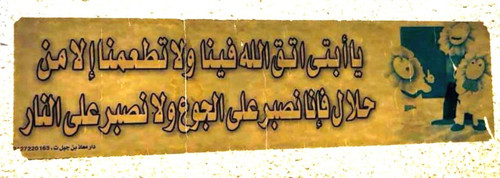 يا أبتى اتق الله فينا ولا تطعمنا إلا من
حلال فإنا نصبر على الجوع ولا نصبر على النار
دار معاذ بن جبل ت : 27220163